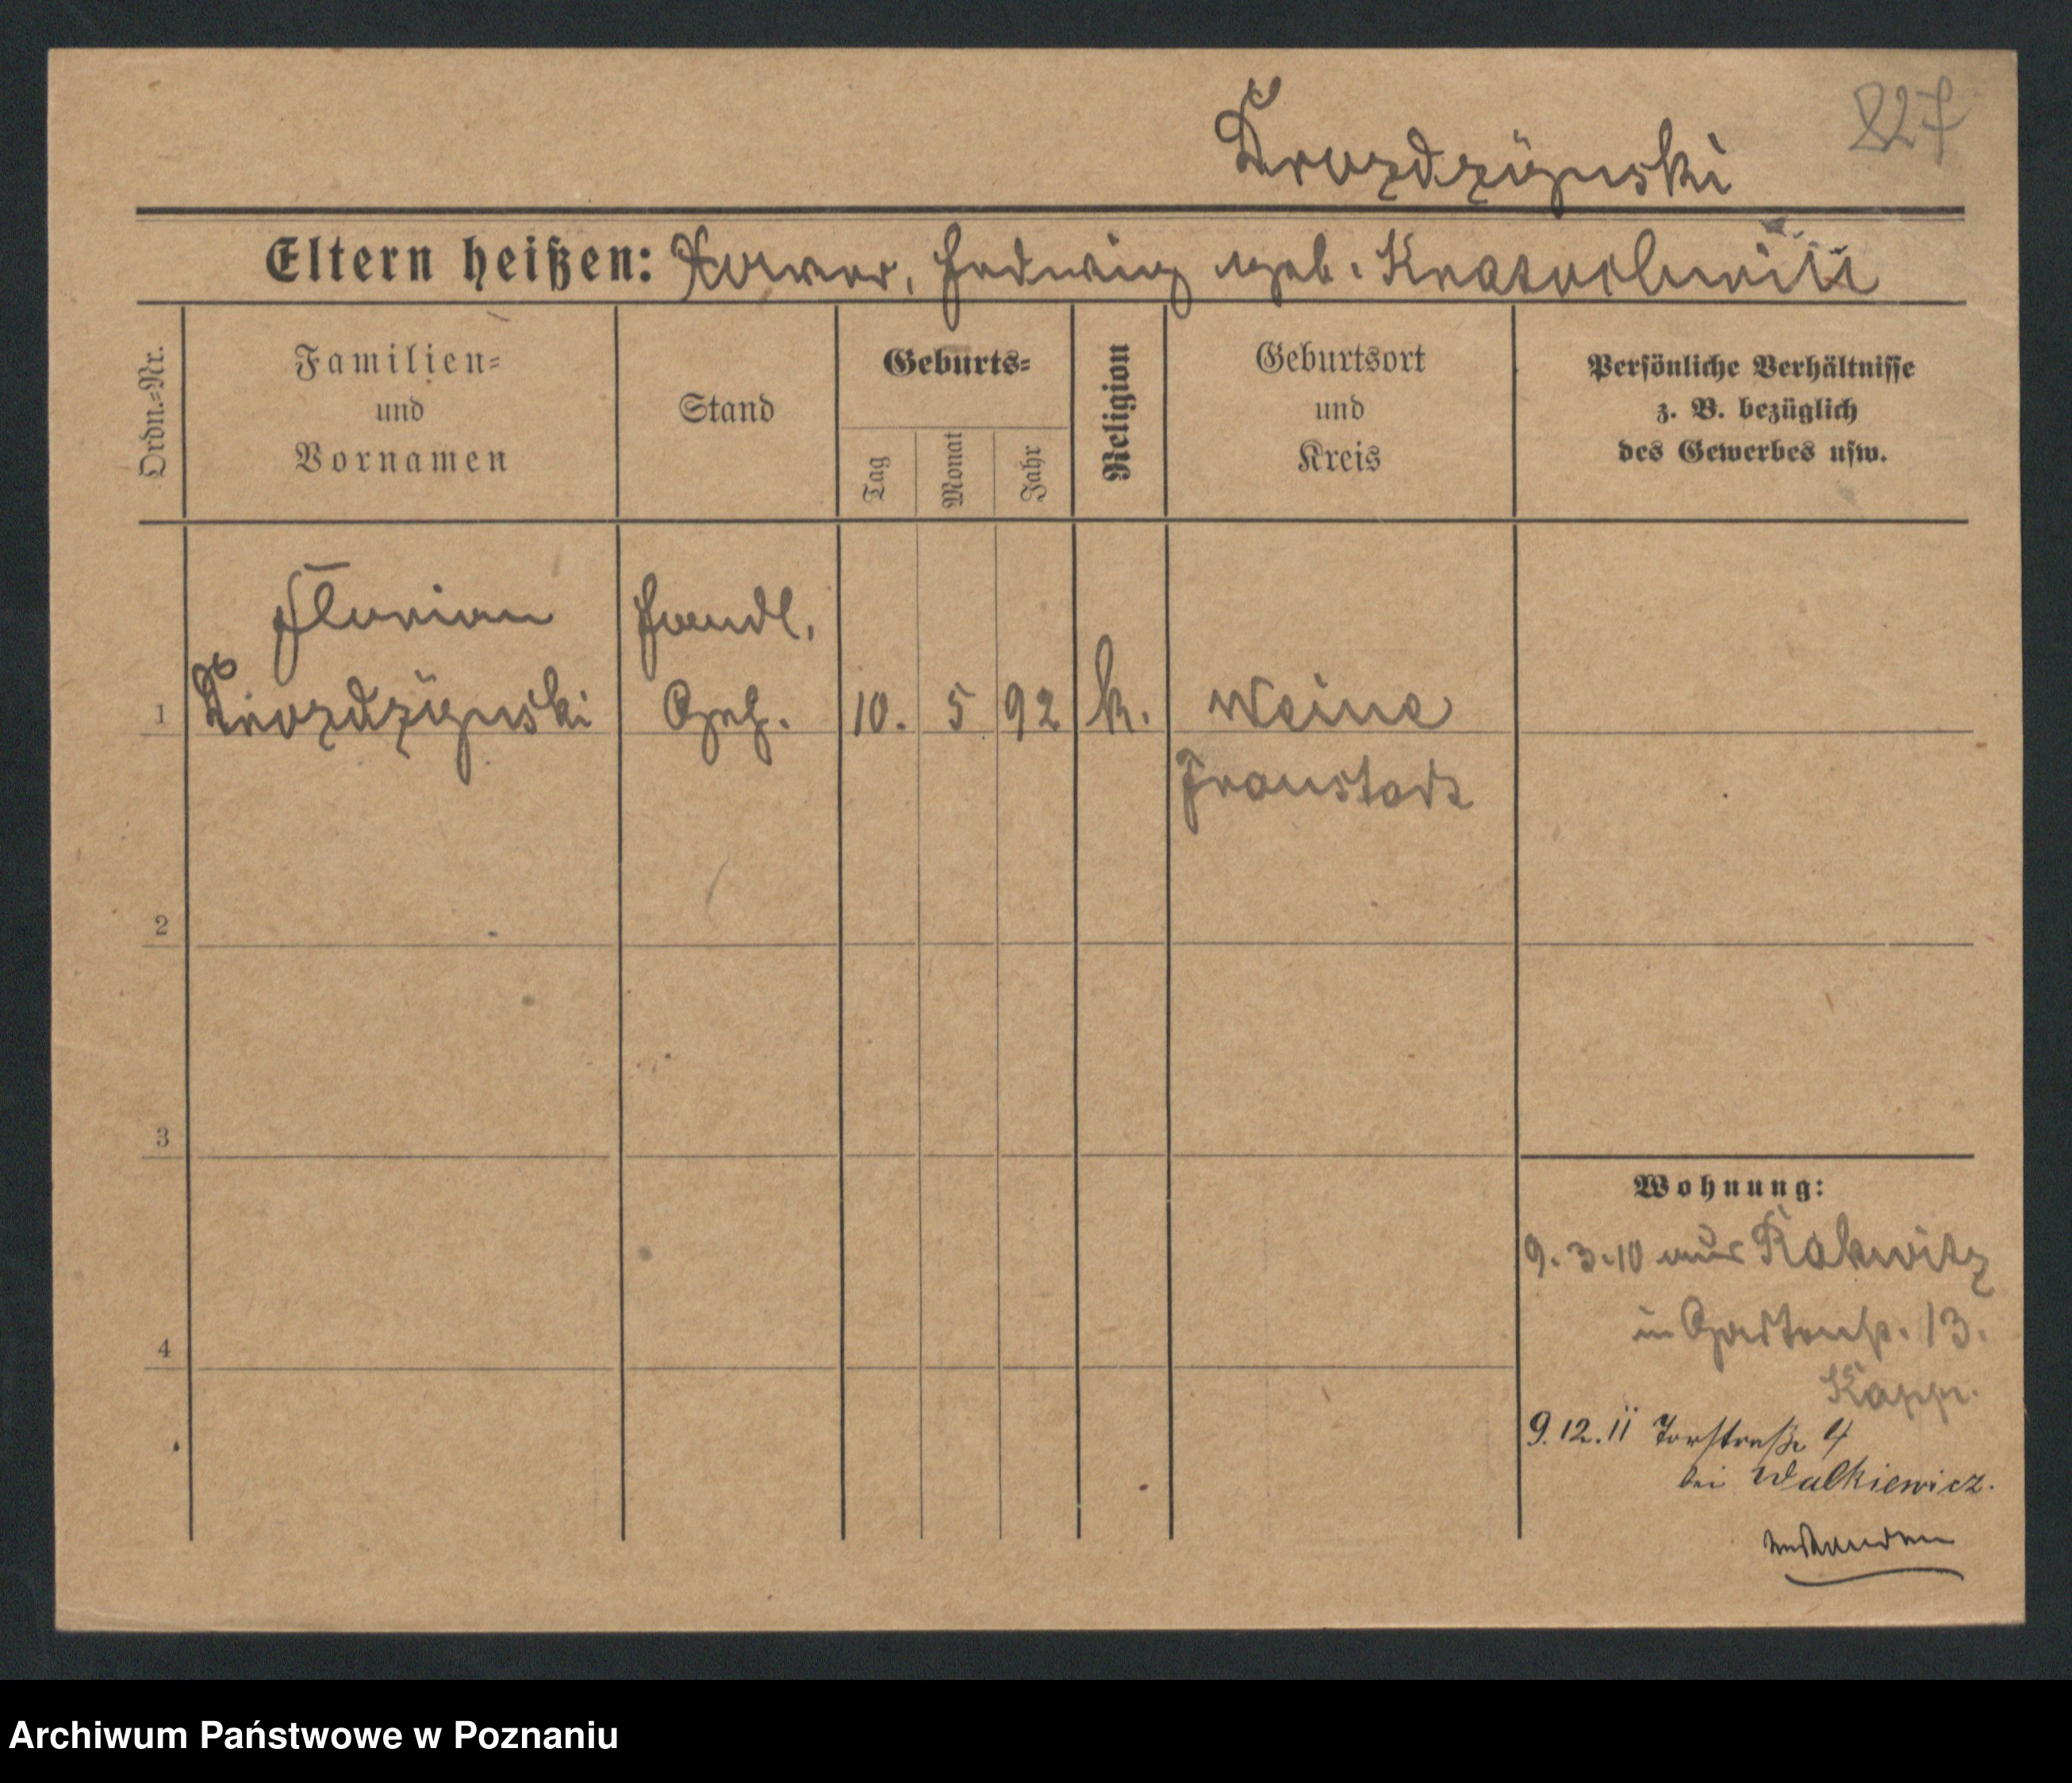 827
Drozdzynski
Eltern heißen: Xaver, Hedwig geb. Kratochwill
Ordn.=Nr.
Familien=
und
Vornamen
Stand
Geburts=
Tag
Monat
Jahr
Religion
Geburtsort
und
Kreis
Persönliche Verhältnisse
z. B. bezüglich
des Gewerbes usw.
Florian Handl.
1 Drozdzynski Geh. 10. 5 92 k. Weine
Fraustadt
2
3
4
Wohnung:
9.3.10 aus Rakwitz
in Gartenstr. 13.
9.12.11 Torstraße 4
bei Walkiewicz.
Archiwum Państwowe w Poznaniu